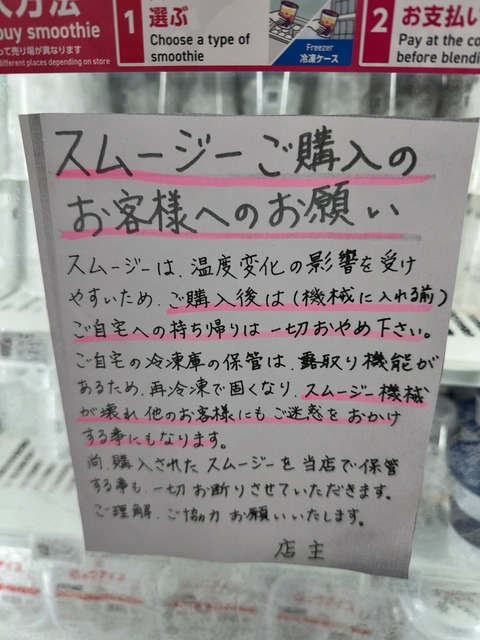 方法
buy smoothie
って売り場が異なります
different places depending on store
1
選ぶ
Choose a type of
smoothie
Freezer
冷凍ケース
2
お支払い
Pay at the co
before blendi
スムージーご購入の
お客様へのお願い
スムージーは、温度変化の影響を受け
やすいため、ご購入後は(機械に入れる前)
ご自宅への持ち帰りは一切おやめ下さい。
ご自宅の冷凍庫の保管は、霜取り機能が
あるため、再冷凍で固くなり、スムージー機械
が壊れ他のお客様にもご迷惑をおかけ
する事にもなります。
尚、購入されたスムージーを当店で保管
する事も、一切お断りさせていただきます。
ご理解、ご協力お願いいたします。
店主